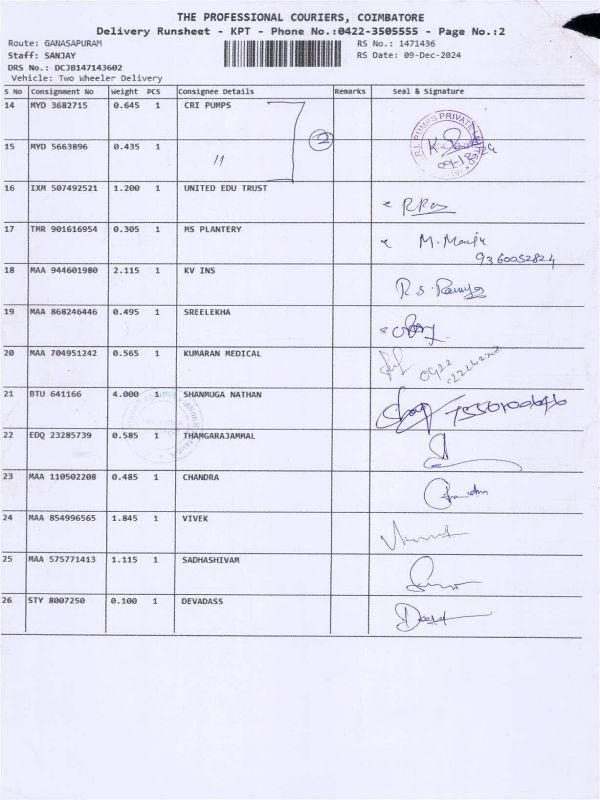 THE PROFESSIONAL COURIERS, COIMBATORE
Delivery Runsheet - KPT - Phone No.:0422-3505555 - Page No.:2
Route: GANASAPURAM RS No.: 1471436
Staff: SANJAY RS Date: 09-Dec-2024
DRS No.: DCJB147143602
Vehicle: Two Wheeler Delivery
S No Consignment No Weight PCS Consignee Details Remarks Seal & Signature
14 MYD 3682715 0.645 1 CRI PUMPS
2
15 MYD 5663896 0.435 1 11
16 IXM 507492521 1.200 1 UNITED EDU TRUST
17 TMR 901616954 0.305 1 MS PLANTERY M.
9360052824
18 MAA 944601980 2.115 1 KV INS R.S.
19 MAA 868246446 0.495 1 SREELEKHA
20 MAA 704951242 0.565 1 KUMARAN MEDICAL 0422
21 BTU 641166 4.000 1 SHANMUGA NATHAN
22 EDQ 23285739 0.585 1 THAMGARAJAMMAL
23 MAA 110502208 0.485 1 CHANDRA
24 MAA 854996565 1.845 1 VIVEK
25 MAA 575771413 1.115 1 SADHASHIVAM
26 STY 8007250 0.100 1 DEVADASS